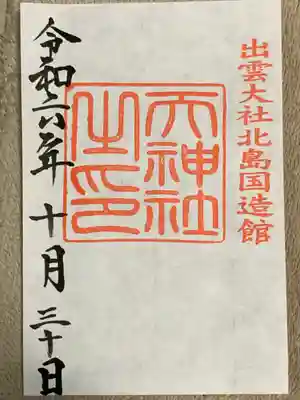 出雲大社北島国造館
天神社
之印
令和六年 十月 三十日